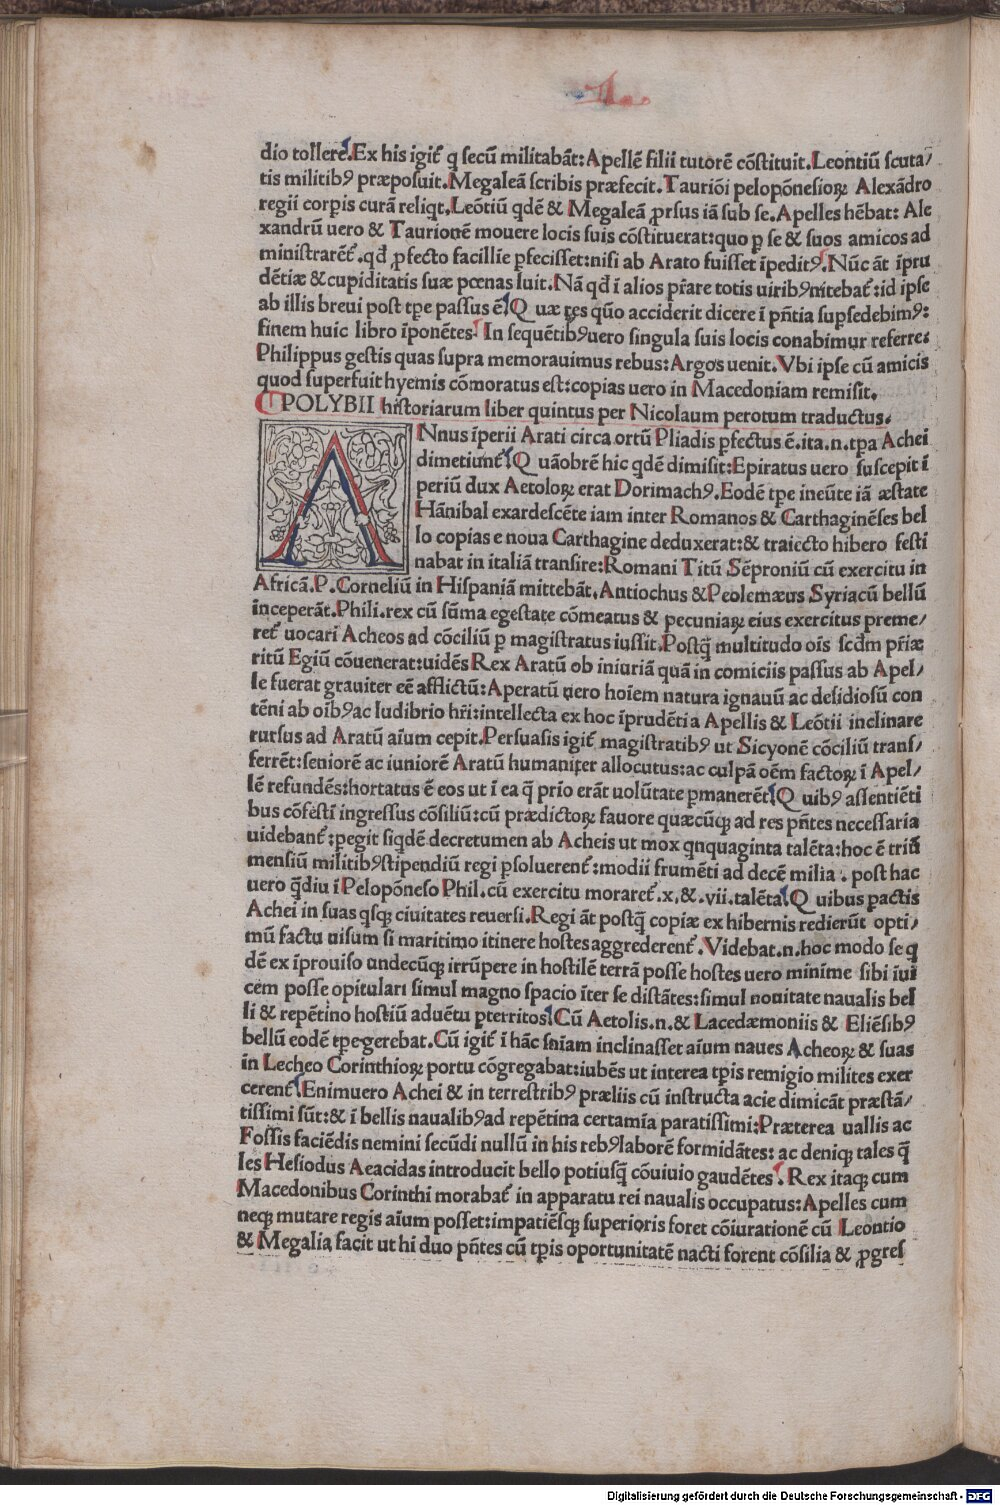 dio tollere. Ex his igit᷑ q ſecū militabāt: Apellē filii tutorē cōſtituit. Leontiū ſcuta/
tis militibꝰ præpoſuit. Megaleā ſcribis præfecit. Tauriōi pelopōneſioꝝ Alexādro
regii corꝑis curā reliqt. Leōtiū qdē & Megaleā ꝓrſus iā ſub ſe. Apelles hēbat: Ale
xandrū uero & Taurionē mouere locis ſuis cōſtituerat: quo ꝑ ſe & ſuos amicos ad
miniſtrarēt᷑. qđ ꝓfecto facillīe ꝑfeciſſet: niſi ab Arato fuiſſet īpeditꝰ. Nūc āt īpru
dētiæ & cupiditatis ſuæ pœnas luit. Nā qđ ī alios p̄rare totis uiribꝰ nitebat᷑: id ipſe
ab illis breui poſt tꝑe paſſus ē. Q uæ res qūo acciderit dicere ī pn̄tia ſupſedebimꝰ:
finem huic libro īponētes. In ſequētibꝰ uero ſingula ſuis locis conabimur referre:
Philippus geſtis quas ſupra memorauimus rebus: Argos uenit. Vbi ipſe cū amicis
quod ſuperfuit hyemis cōmoratus eſt: copias uero in Macedoniam remiſit.
POLYBII hiſtoriarum liber quintus per Nicolaum perotum traductus.
ANnus īperii Arati circa ortū Pliadis ꝑfectus ē. ita. n. tꝑa Achei
dimetiunt᷑. Q uāobrē hic qdē dimiſit: Epiratus uero ſuſcepit ī
periū dux Aetoloꝝ erat Dorimachꝰ. Eodē tꝑe ineūte iā æſtate
Hānibal exardeſcēte iam inter Romanos & Carthaginēſes bel
lo copias e noua Carthagine deduxerat: & traiecto hibero feſti
nabat in italiā tranſire: Romani Titū Sēproniū cū exercitu in
Africā. P. Corneliū in Hiſpaniā mittebāt. Antiochus & Peolemæus Syriacū bellū
inceperāt. Phili. rex cū ſūma egeſtate cōmeatus & pecuniaꝝ eius exercitus preme/
ret᷑ uocari Acheos ad cōciliū ꝑ magiſtratus iuſſit. Poſtq̄ multitudo oīs ſcd̄m p̄riæ
ritū Egiū cōuenerat: uidēs Rex Aratū ob iniuriā quā in comiciis paſſus ab Apel/
le fuerat grauiter eē afflictū: Aperatū uero hoīem natura ignauū ac deſidioſū con
tēni ab oībꝰ ac ludibrio hr̄i: intellecta ex hoc īprudētia Apellis & Leōtii inclinare
rurſus ad Aratū aīum cepit. Perſuaſis igit᷑ magiſtratibꝰ ut Sicyonē cōciliū tranſ/
ferrēt: ſeniorē ac iuniorē Aratū humaniter allocutus: ac culpā oēm factoꝝ ī Apel/
lē refundēs: hortatus ē eos ut ī ea q̄ prio erāt uolūtate ꝑmanerēt. Q uibꝰ aſſentiēti
bus cōfeſtī ingreſſus cōſiliū: cū prædictoꝝ fauore quæcūqꝫ ad res pn̄tes neceſſaria
uidebant᷑: pegit ſiqdē decretumen ab Acheis ut mox qnquaginta talēta: hoc ē triū
menſiū militibꝰ ſtipendiū regi ꝑſoluerent᷑: modii frumēti ad decē milia. poſt hac
uero q̄diu ī Pelopōneſo Phil. cū exercitu moraret᷑. x, &. vii. talēta. Q uibus pactis
Achei in ſuas qſqꝫ ciuitates reuerſi. Regi āt poſtq̄ copiæ ex hibernis redierūt opti/
mū factu uiſum ſi maritimo itinere hoſtes aggrederent᷑. Videbat. n. hoc modo ſe q
dē ex īprouiſo undecūqꝫ irrūpere in hoſtilē terrā poſſe hoſtes uero minime ſibi īui
cem poſſe opitulari ſimul magno ſpacio īter ſe diſtātes: ſimul nouitate naualis bel
li & repētino hoſtiū aduētu ꝑterritos. Cū Aetolis. n. & Lacedæmoniis & Eliēſibꝰ
bellū eodē tꝑe gerebat. Cū igit᷑ ī hāc ſniam inclinaſſet aīum naues Acheoꝝ & ſuas
in Lecheo Corinthioꝝ portu cōgregabat: iubēs ut interea tꝑis remigio milites exer
cerent᷑. Enimuero Achei & in terreſtribꝰ præliis cū inſtructa acie dimicāt præſtā/
tiſſimi ſūt: & ī bellis naualibꝰ ad repētina certamīa paratiſſimi: Præterea uallis ac
Foſſis faciēdis nemini ſecūdi nullū in his rebꝰ laborē formidātes: ac deniqꝫ tales q̄
les Heſiodus Aeacidas introducit bello potiuſq̄ cōuiuio gaudētes. Rex itaqꝫ cum
Macedonibus Corinthi morabat᷑ in apparatu rei naualis occupatus: Apelles cum
neqꝫ mutare regis aīum poſſet: impatiēſqꝫ ſuperioris foret cōiurationē cū Leontio
& Megalia facit ut hi duo pn̄tes cū tꝑis oportunitatē nacti forent cōſilia & ꝓgreſ
Digitalisierung gefördert durch die Deutsche Forschungsgemeinschaft - DFG